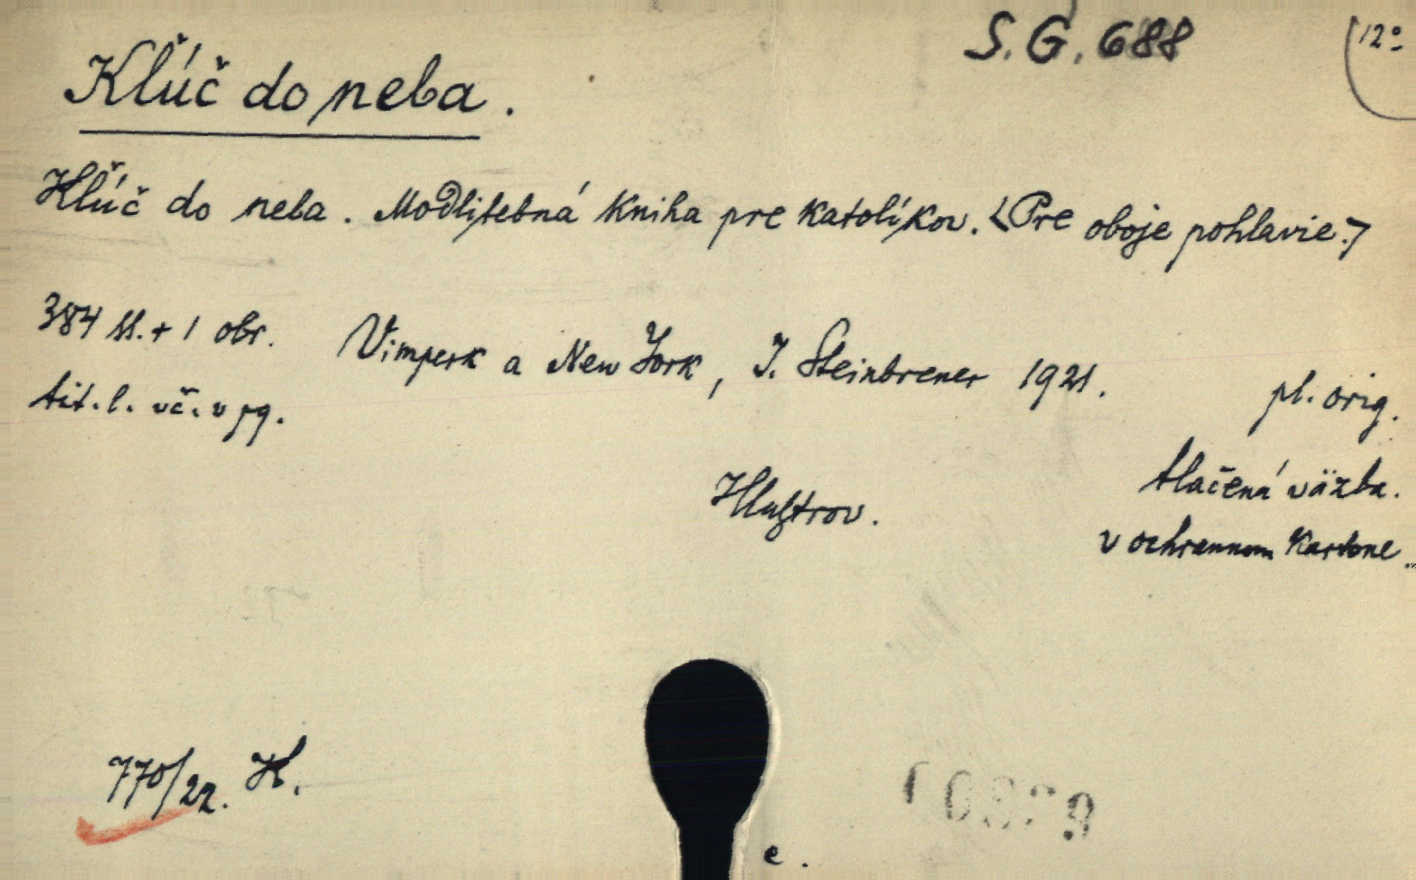 S. G. 688
12°
Kľúč do neba.
Kľúč do neba. Modlitebná kniha pre katolíkov. <Pre oboje pohlavie.>
384 ss. + 1 obr. Vimperk a New York, J. Steinbrener 1921.
tit. l. vč. v pg.
pl. orig.
tlačená väzba.
v ochrannom kartone
Illustrov.
770/22. H.
e.